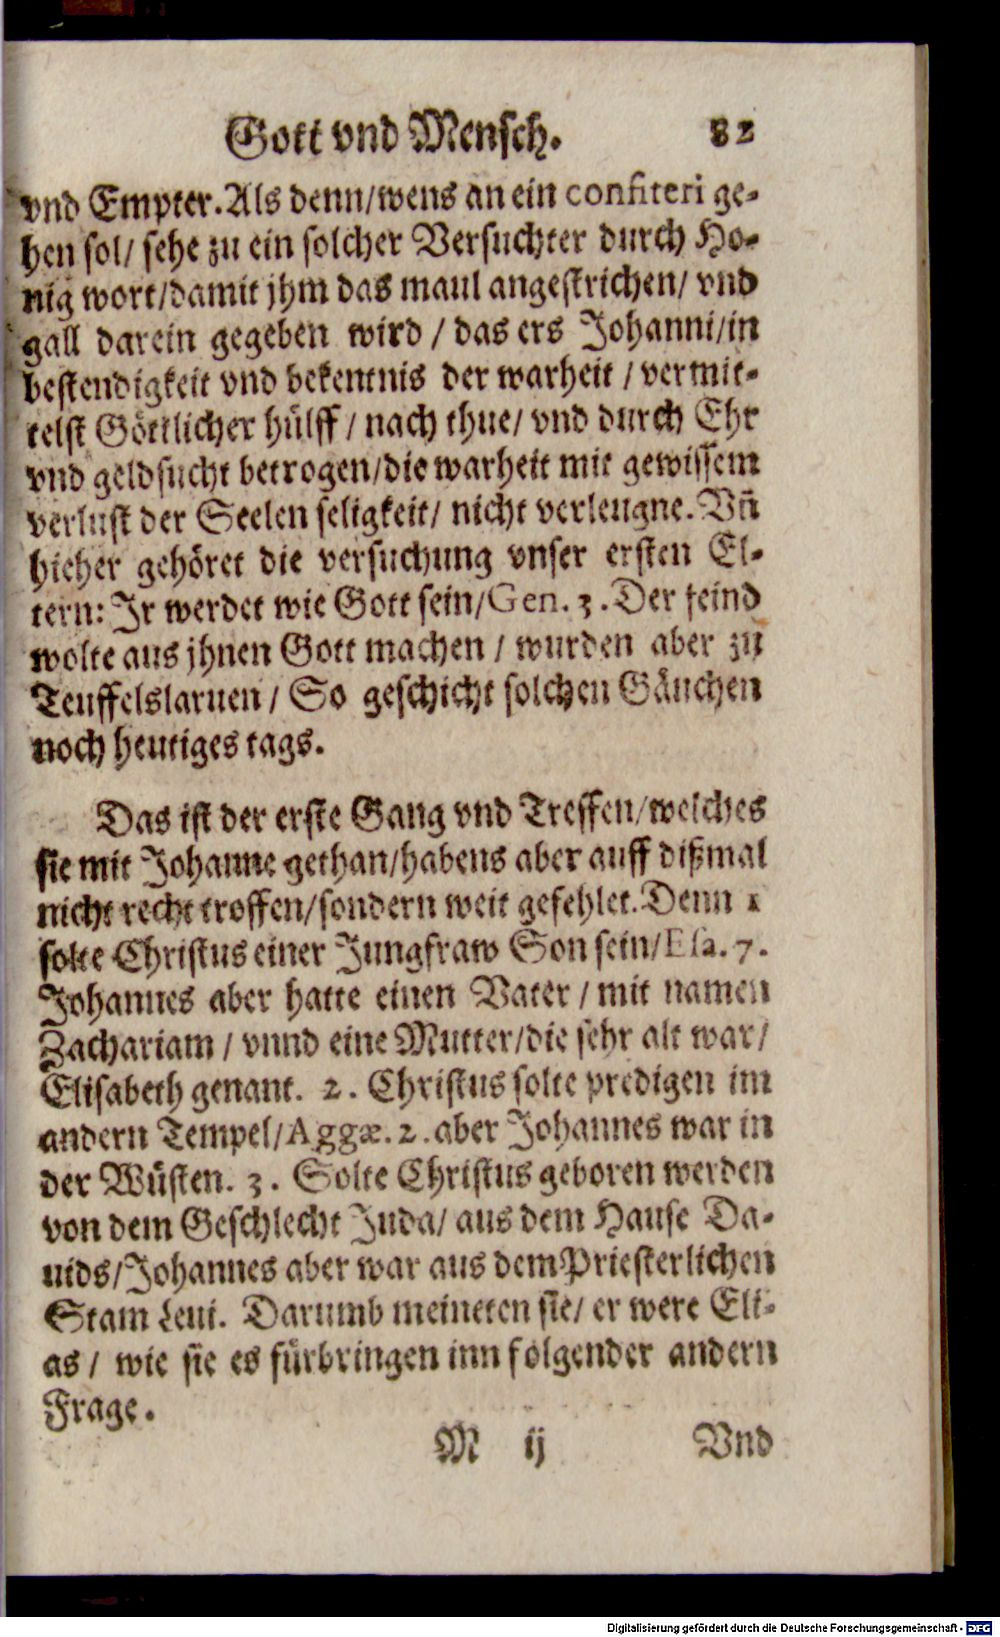 Gott vnd Mensch. 82
vnd Empter. Als denn/wens an ein confiteri ge-
hen sol/ sehe zu ein solcher Versuchter durch Ho-
nig wort/damit jhm das maul angestrichen/ vnd
gall darein gegeben wird / das ers Johanni/in
bestendigkeit vnd bekentnis der warheit / vermit-
telst Göttlicher hülff / nach thue/ vnd durch Ehr
vnd geldsucht betrogen/die warheit mit gewissem
verlust der Seelen seligkeit/ nicht verleugne. Vñ
hieher gehöret die versuchung vnser ersten El-
tern: Ir werdet wie Gott sein/Gen. 3. Der feind
wolte aus jhnen Gott machen / wurden aber zu
Teuffelslaruen / So geschicht solchen Gäuchen
noch heutiges tags.
Das ist der erste Gang vnd Treffen/welches
sie mit Johanne gethan/habens aber auff dißmal
nicht recht troffen/sondern weit gefehlet. Denn 1
solte Christus einer Jungfraw Son sein/Esa. 7.
Johannes aber hatte einen Vater / mit namen
Zachariam / vnnd eine Mutter/die sehr alt war/
Elisabeth genant. 2. Christus solte predigen im
andern Tempel/Aggæ. 2. aber Johannes war in
der Wüsten. 3. Solte Christus geboren werden
von dem Geschlecht Juda/ aus dem Hause Da-
uids/Johannes aber war aus dem Priesterlichen
Stam Leui. Darumb meineten sie/ er were Eli-
as / wie sie es fürbringen inn folgender andern
Frage.
M ij Vnd
Digitalisierung gefördert durch die Deutsche Forschungsgemeinschaft - DFG